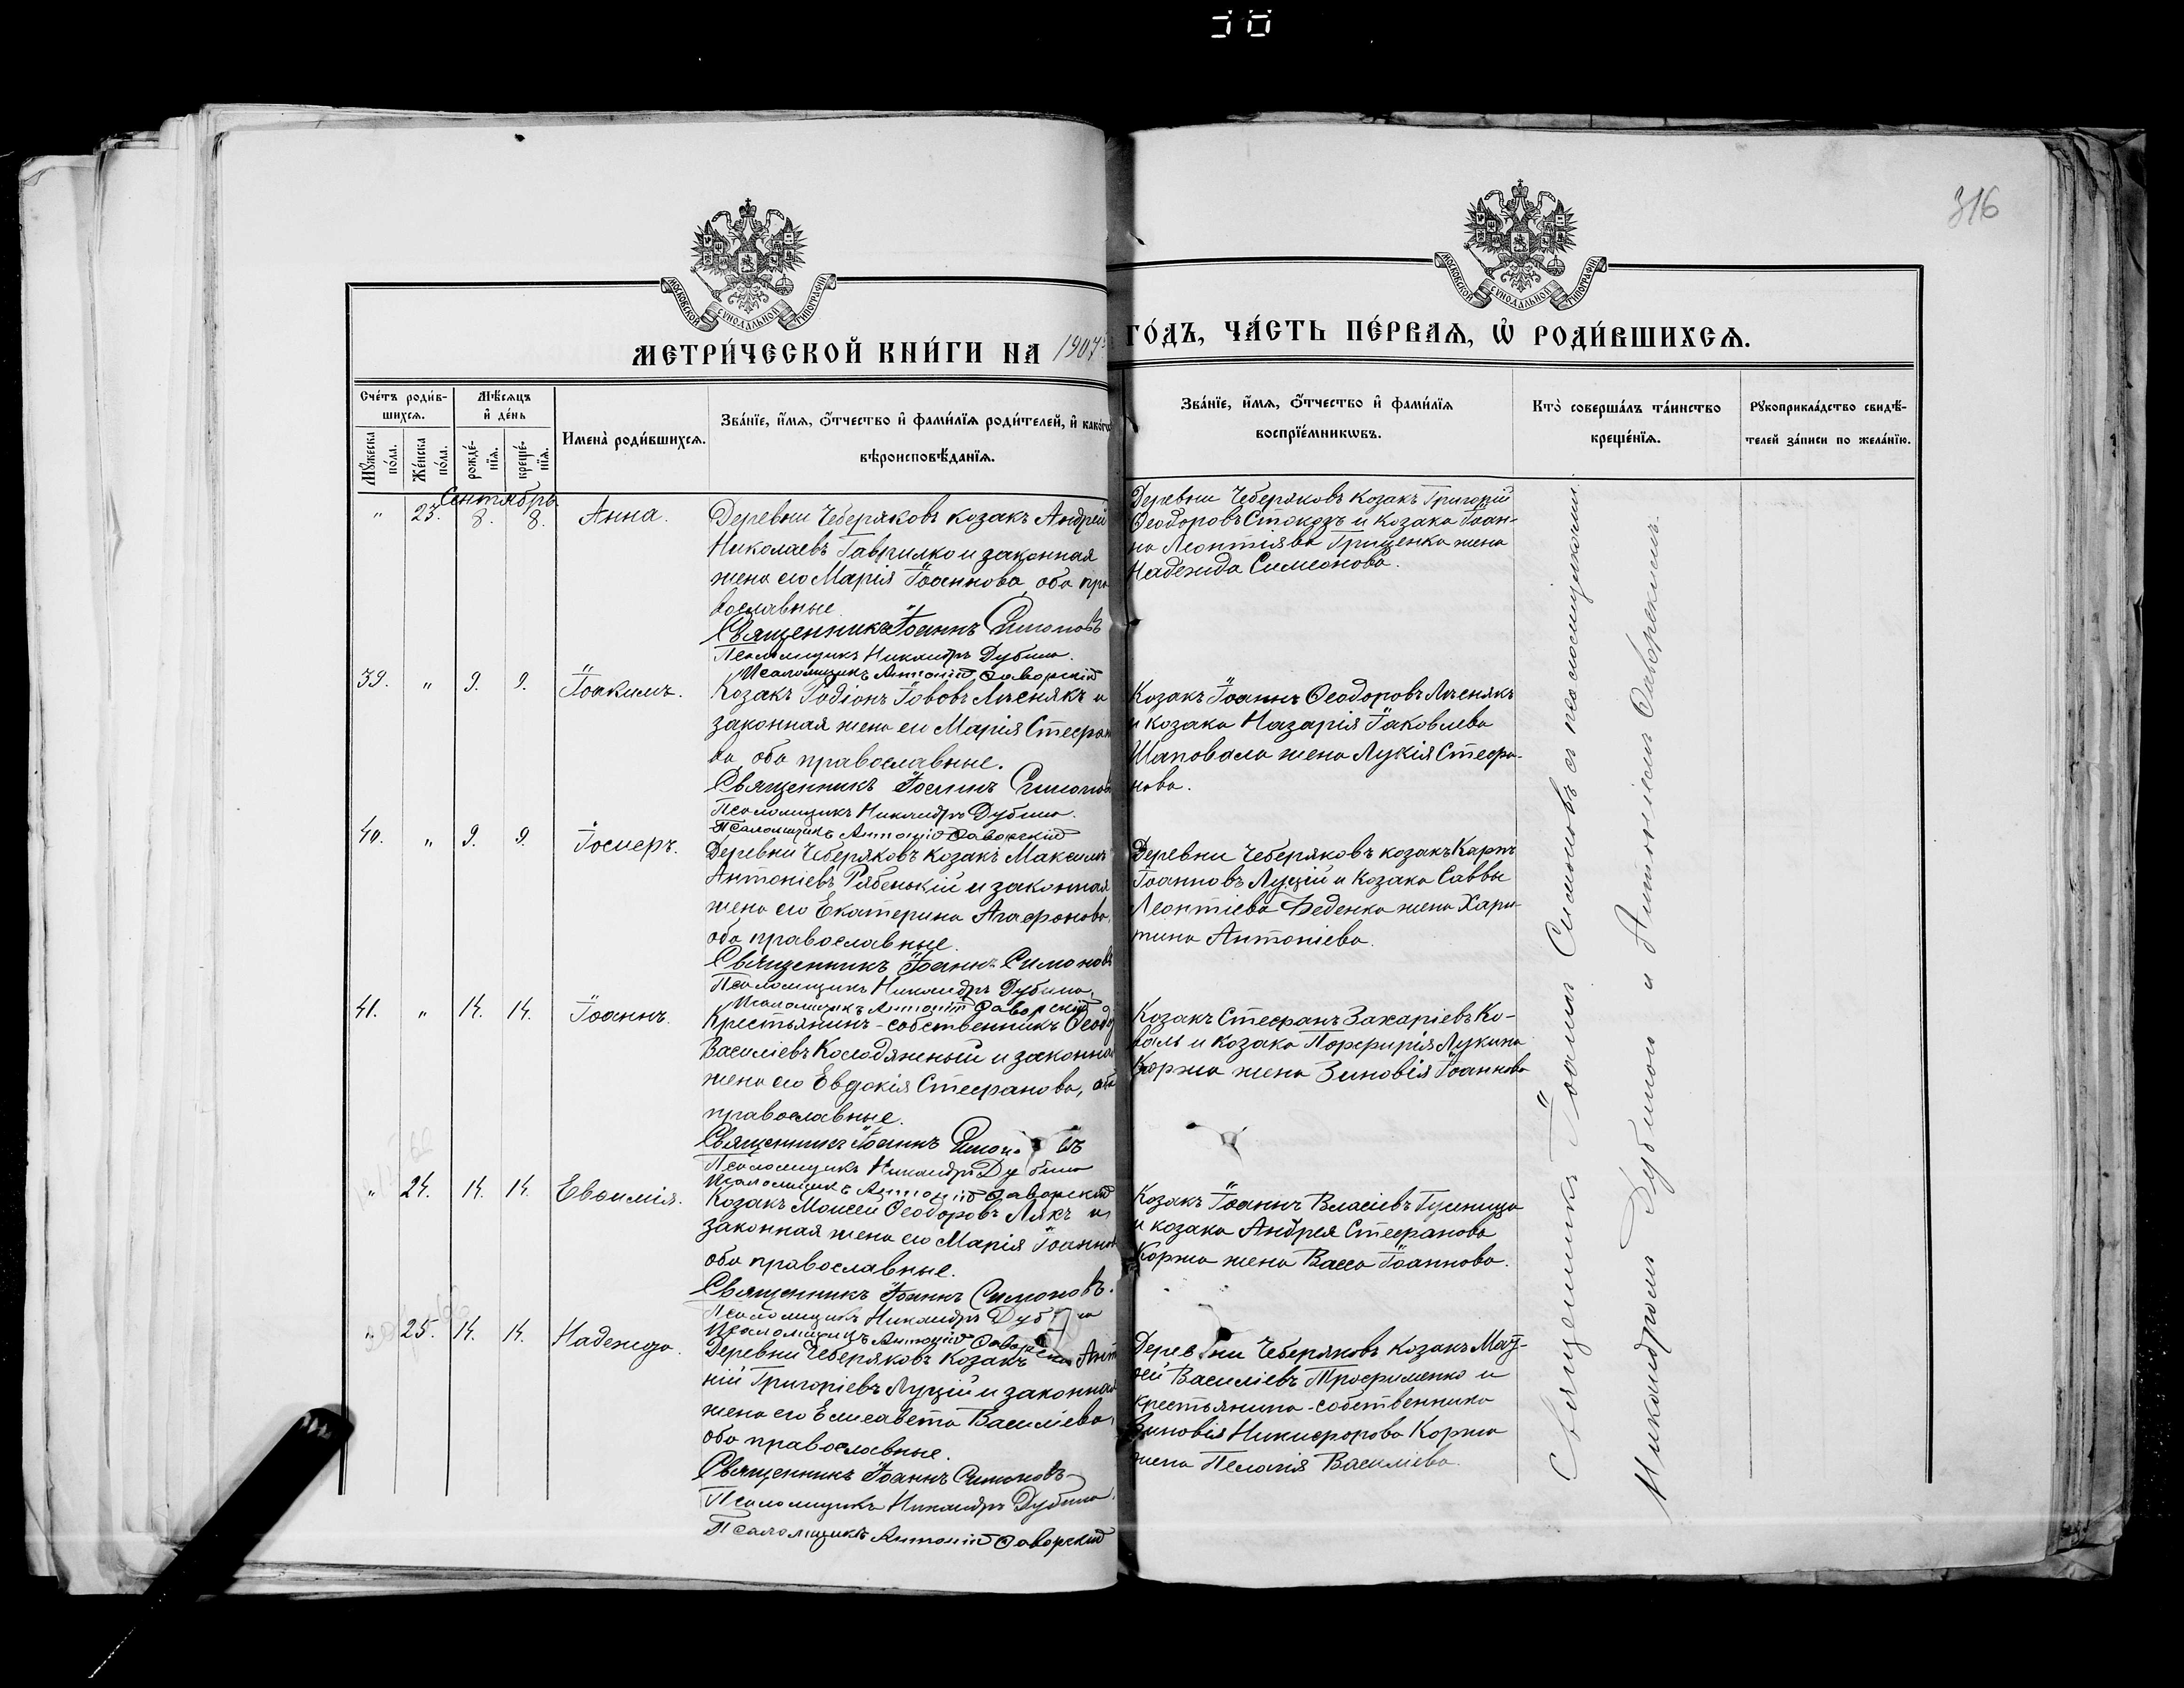 316
МОСКОВСКОЙ СѴНОДАЛЬНОЙ ТИПОГРАФІИ
МОСКОВСКОЙ СѴНОДАЛЬНОЙ ТИПОГРАФІИ
МЕТРИ́ЧЕСКОЙ КНИ́ГИ НА 1907 ГО́ДЪ, ЧА́СТЬ ПЕ́РВАѦ, Ѡ҆ РОДИ́ВШИХСѦ.
Сче́тъ роди́в-
шихсѧ.
Мꙋ́жеска по́ла.
Же́нска по́ла.
Мѣ́сѧцъ
и҆ де́нь
рожде́-
нїѧ.
креще́-
нїѧ.
Имена̀ роди́вшихсѧ.
Зва́нїе, и҆́мѧ, ѻ҆́тчество и҆ фами́лїѧ роди́телей, и҆ како́гѡ
вѣроисповѣ́данїѧ.
Зва́нїе, и҆́мѧ, ѻ҆́тчество и҆ фами́лїѧ
воспрїе́мникѡвъ.
Кто̀ соверша́лъ та́инство
креще́нїѧ.
Рꙋкоприкла́дство свидѣ́-
телей за́писи по жела́нїю.
Сентябрь
" 23. 8. 8. Анна.
Деревни Чеберяковъ козакъ Андрей
Николаевъ Гаврилко и законная
жена его Марія Іоаннова, оба пра
вославные.
Священникъ Іоаннъ Симоновъ
Псаломщикъ Никандръ Дубина.
Псаломщикъ Антоній Яворскій
Деревни Чеберяковъ козакъ Григорій
Ѳеодоровъ и козака Іоан-
на Леонтіева Грищенка жена
Надежда Симеонова.
39. " 9. 9. Іоакимъ.
Козакъ Родіонъ Іововъ Лисенякъ и
законная жена его Марія Стефано
ва, оба православные.
Священникъ Іоаннъ Симоновъ
Псаломщикъ Никандръ Дубина.
Псаломщикъ Антоній Яворскій
Козакъ Іоаннъ Ѳеодоровъ Лисенякъ
и козака Назарія Іаковлева
Шаповала жена Лукія Стефа-
нова.
40. " 9. 9. Іосифъ.
Деревни Чеберяковъ козакъ Максимъ
Антоніевъ Рябенькій и законная
жена его Екатерина Агафонова,
оба православные.
Священникъ Іоаннъ Симоновъ
Псаломщикъ Никандръ Дубина.
Псаломщикъ Антоній Яворскій
Деревни Чеберяковъ козакъ Карпъ
Іоанновъ Луцій и козака Саввы
Леонтіева Беденка жена Хари-
тина Антоніева.
41. " 14. 14. Іоаннъ.
Крестьянинъ-собственникъ Ѳеодо
Василіевъ Колодяжный и законная
жена его Евдокія Стефанова, оба
православные.
Священникъ Іоаннъ Симоновъ
Псаломщикъ Никандръ Дубина
Псаломщикъ Антоній Яворскій
Козакъ Стефанъ Захаріевъ Ко-
валь и козака Порфирія Лукина
Коржа жена Зиновія Іоаннова
" 24. 14. 14. Евѳимія.
Козакъ Моисей Ѳеодоровъ Лякъ и
законная жена его Марія Іоаннова
оба православные.
Священникъ Іоаннъ Симоновъ.
Псаломщикъ Никандръ Дубина
Псаломщикъ Антоній Яворскій
Козакъ Іоаннъ Власіевъ Гусеница
и козака Андрея Стефанова
Коржа жена Васса Іоаннова.
" 25. 14. 14. Надежда.
Деревни Чеберяковъ козакъ Анто
ній Григоріевъ Луцій и законная
жена его Елисавета Василіева,
оба православные.
Священникъ Іоаннъ Симоновъ
Псаломщикъ Никандръ Дубина.
Псаломщикъ Антоній Яворскій
Деревни Чеберяковъ козакъ Мат-
ѳей Василіевъ Трофименко и
крестьянина-собственника
Зиновія Никифорова Коржа
жена Пелагія Василіева.
Священникъ Іоаннъ Симоновъ съ псаломщиками
Никандромъ Дубиною и Антоніемъ Яворскимъ.